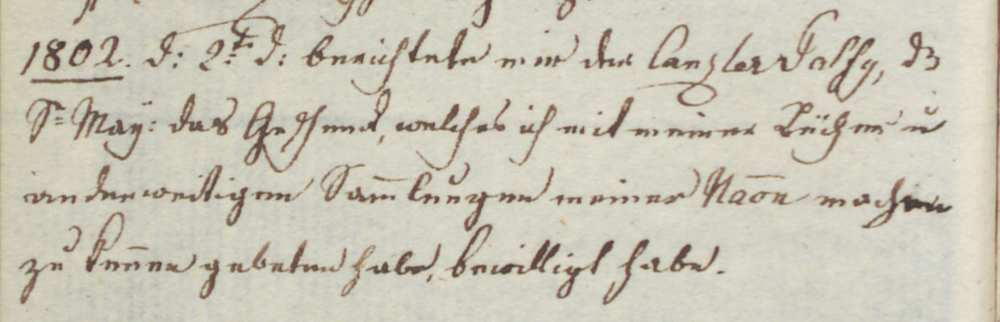 1802. d: 2t. d: berichtete mir der Canzler Palfy, dz
Sr. May: das Geschenk, welches ich mit meiner Bücher u
anderweitigen Samlungen meiner Naōn machen
zu könen gebeten habe, bewilligt habe.